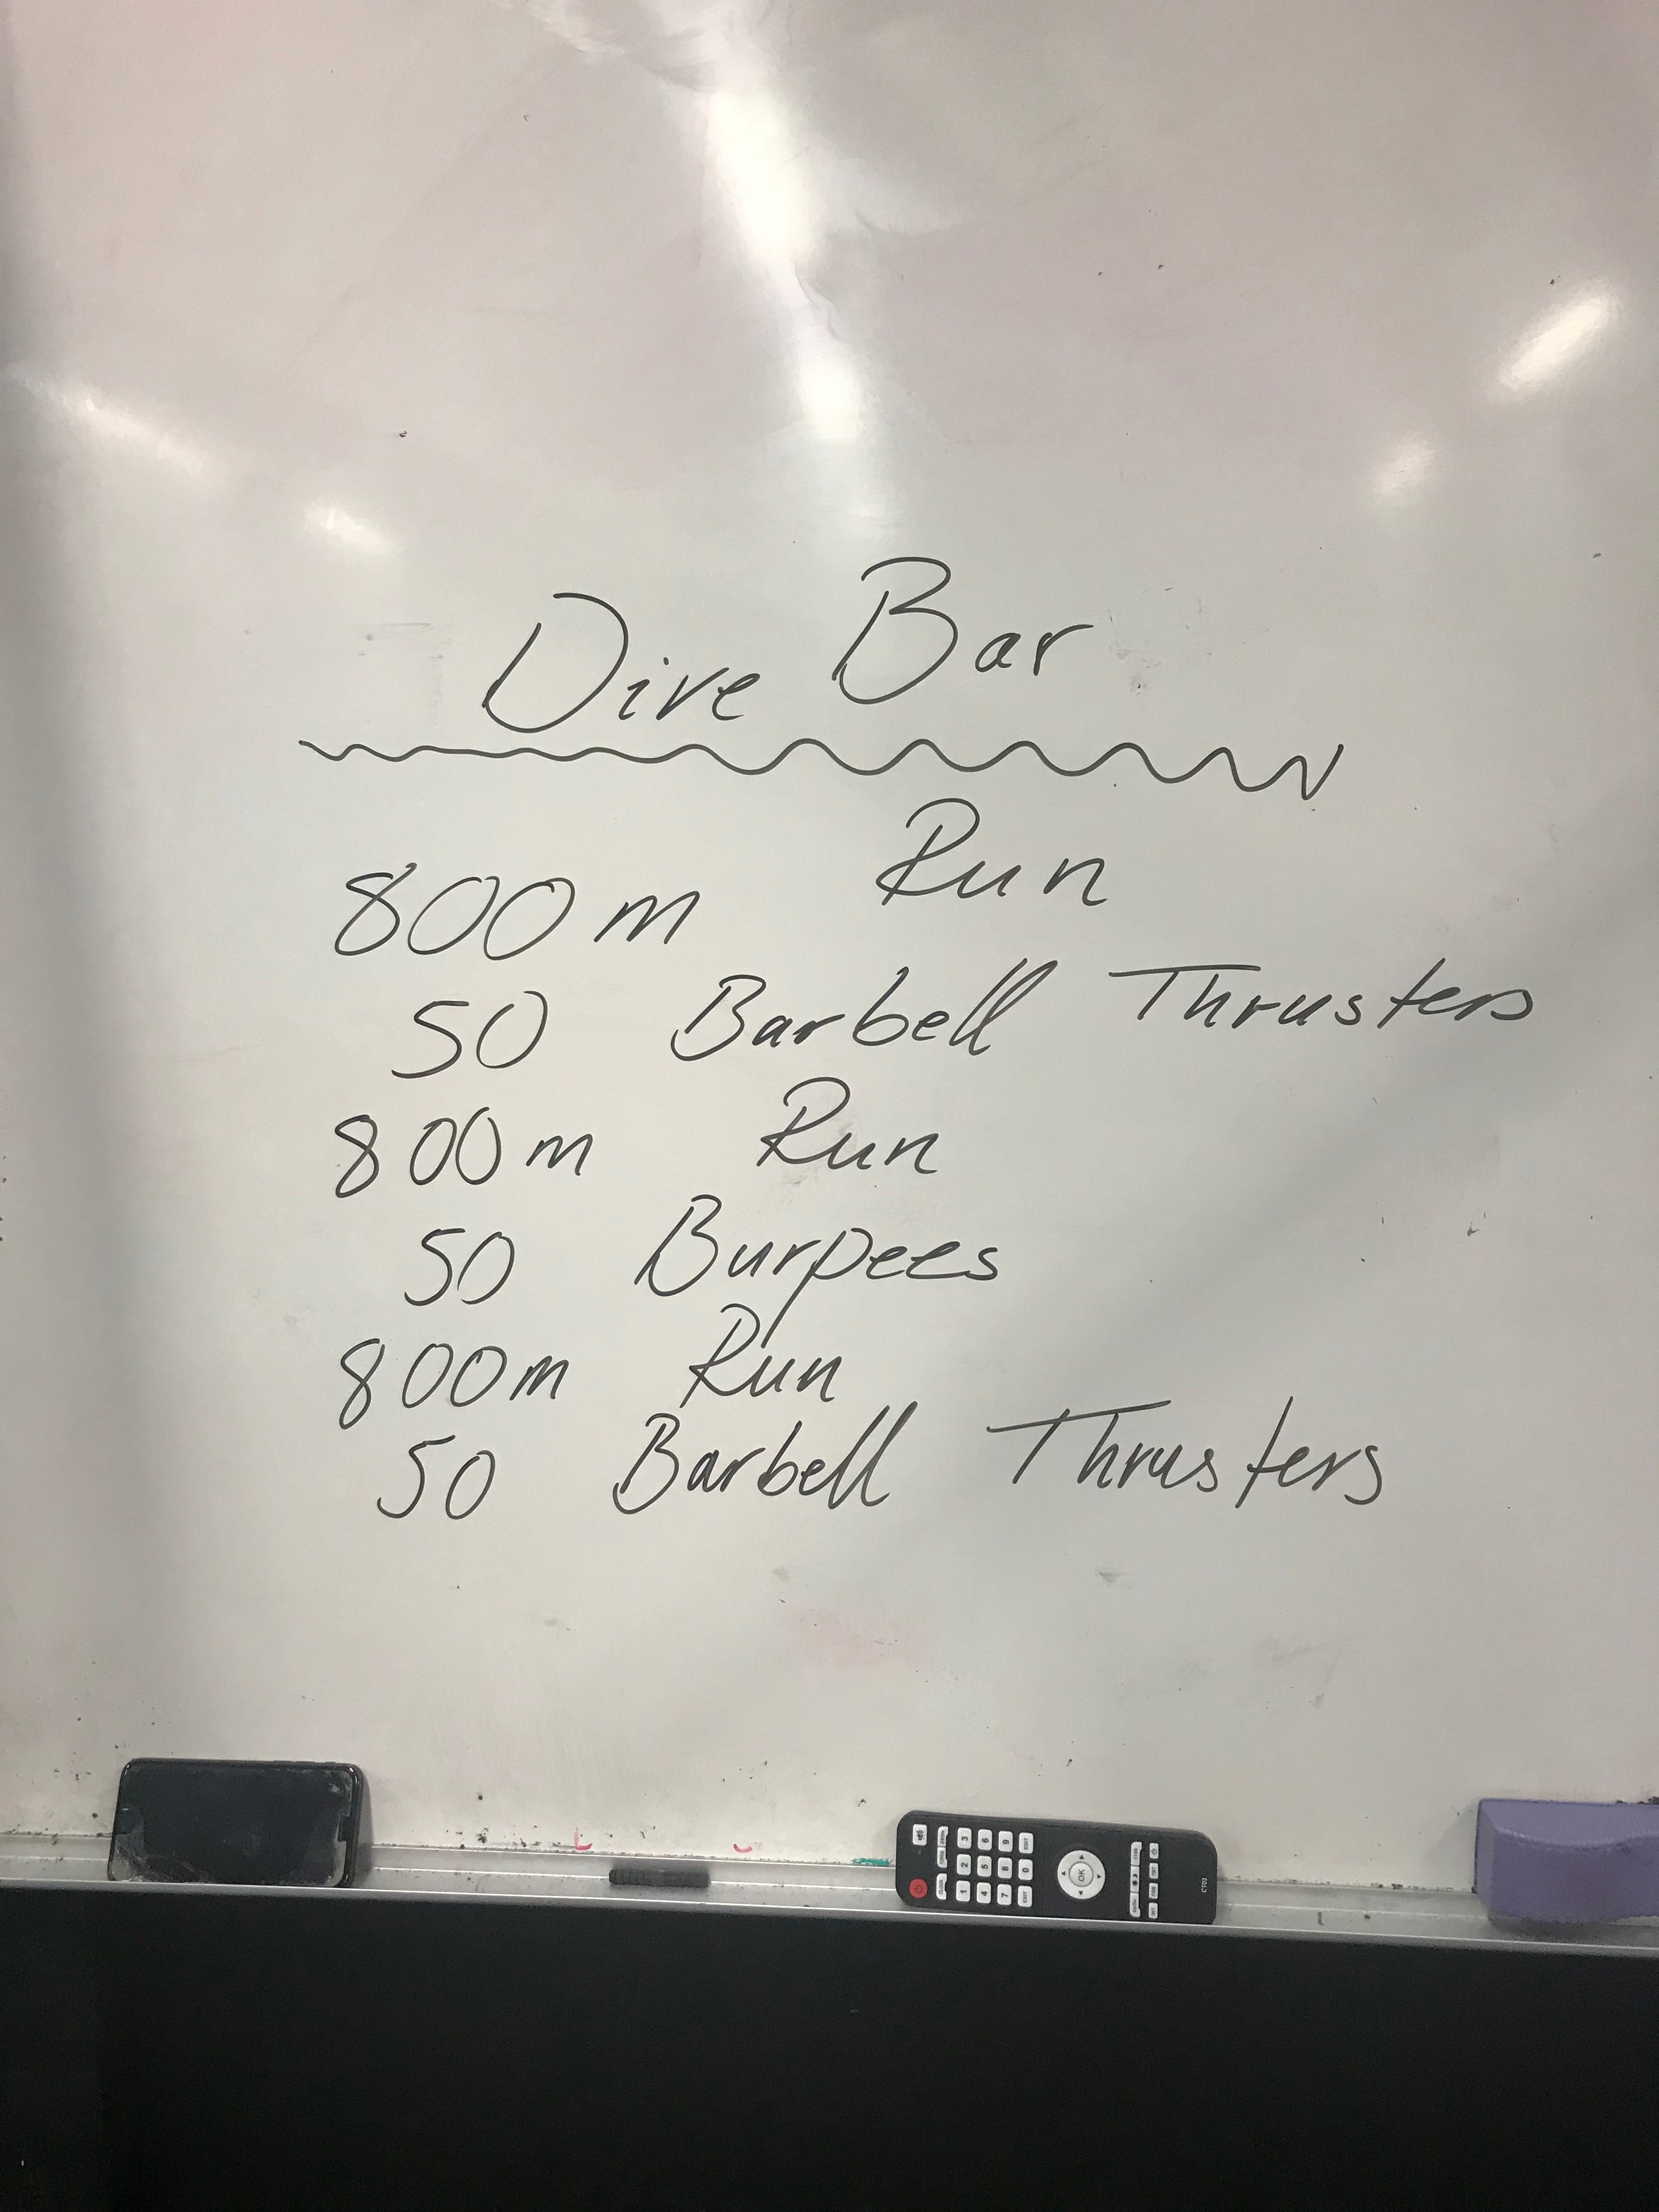 Dive Bar
800m Run
50 Barbell Thrusters
800m Run
50 Burpees
800m Run
50 Barbell Thrusters
3 6 9
2 5 8 0
1 4 7
OK